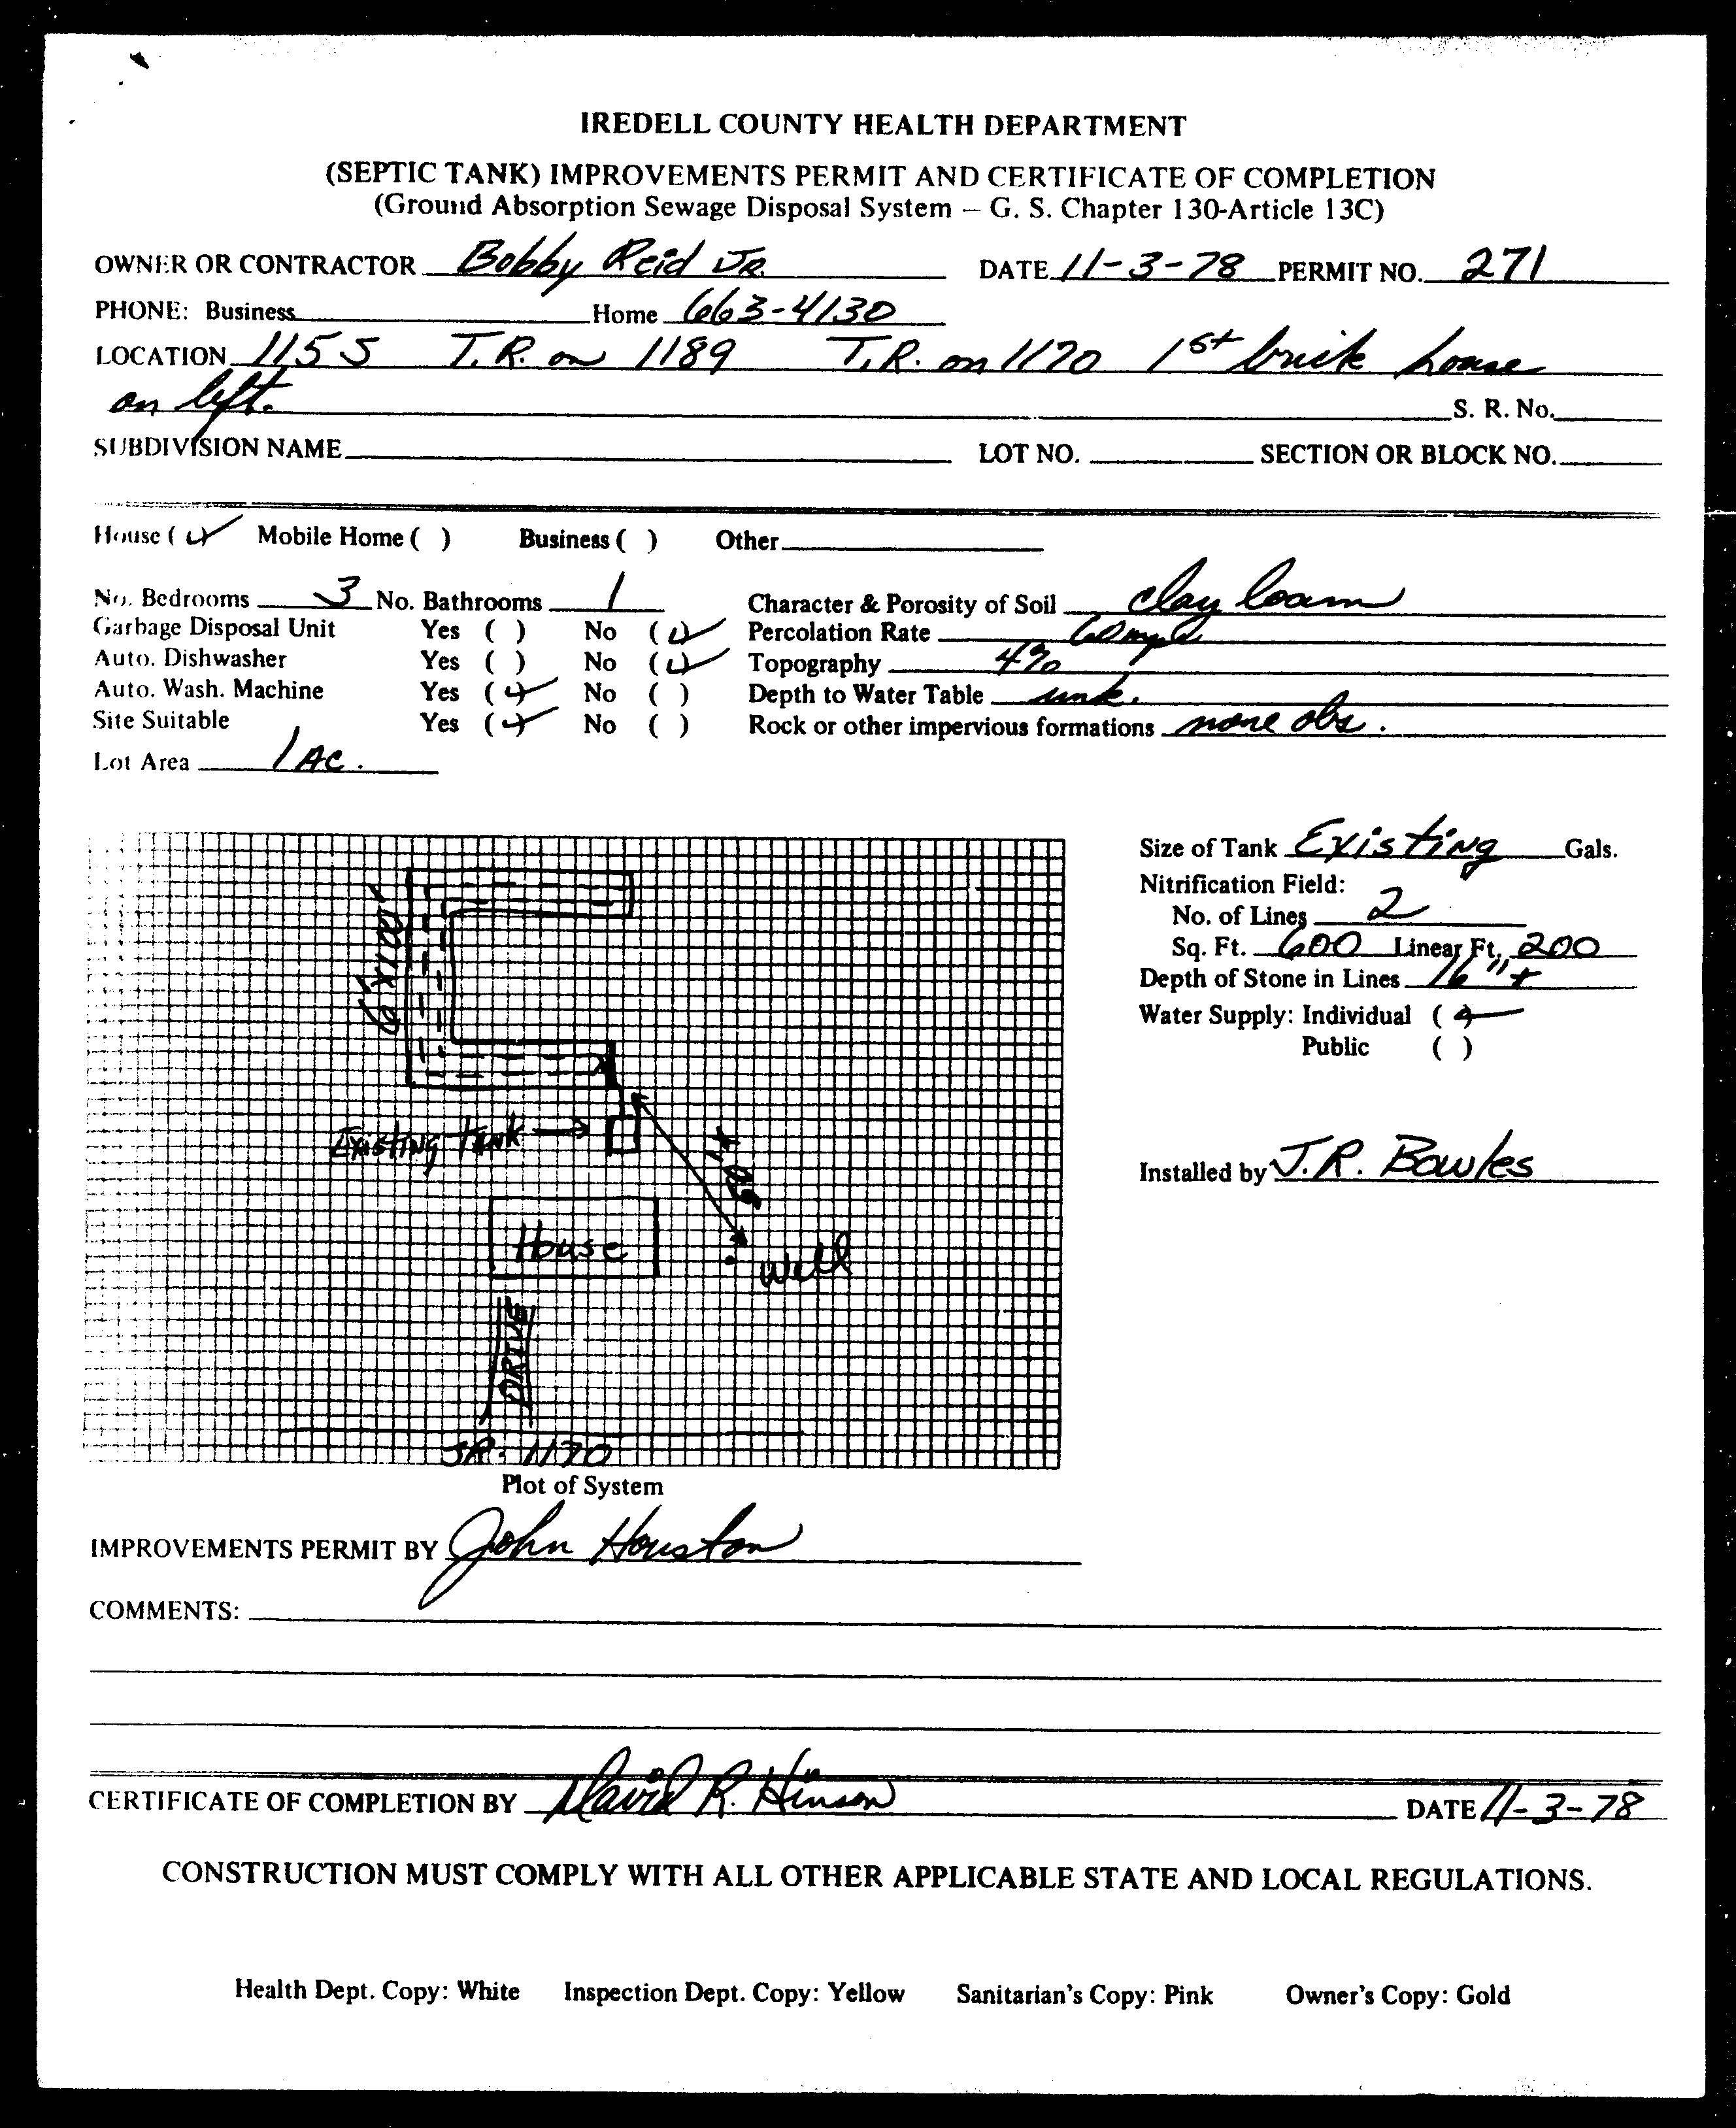 IREDELL COUNTY HEALTH DEPARTMENT
(SEPTIC TANK) IMPROVEMENTS PERMIT AND CERTIFICATE OF COMPLETION
(Ground Absorption Sewage Disposal System – G. S. Chapter 130-Article 13C)
OWNER OR CONTRACTOR Bobby Reid Jr. DATE 11-3-78 PERMIT NO. 271
PHONE: Business Home 663-4130
LOCATION 115 S T.R. on 1189 T.R. on 1170 1st brick house
on left. S. R. No.
SUBDIVISION NAME LOT NO. SECTION OR BLOCK NO.
House (✓) Mobile Home ( ) Business ( ) Other
No. Bedrooms 3 No. Bathrooms 1 Character & Porosity of Soil clay loam
Garbage Disposal Unit Yes ( ) No (✓) Percolation Rate 60 mpi
Auto. Dishwasher Yes ( ) No (✓) Topography 4%
Auto. Wash. Machine Yes (✓) No ( ) Depth to Water Table unk.
Site Suitable Yes (✓) No ( ) Rock or other impervious formations none obs.
Lot Area 1 AC.
Size of Tank Existing Gals.
Nitrification Field:
No. of Lines 2
Sq. Ft. 600 Linear Ft. 200
Depth of Stone in Lines 16"+
Water Supply: Individual (✓)
Public ( )
Installed by J.R. Bowles
6'x100'
Existing Tank
60'+
House
Well
DRIVE
SR. 1170
Plot of System
IMPROVEMENTS PERMIT BY John Houston
COMMENTS:
CERTIFICATE OF COMPLETION BY David R. Hinson DATE 11-3-78
CONSTRUCTION MUST COMPLY WITH ALL OTHER APPLICABLE STATE AND LOCAL REGULATIONS.
Health Dept. Copy: White Inspection Dept. Copy: Yellow Sanitarian's Copy: Pink Owner's Copy: Gold